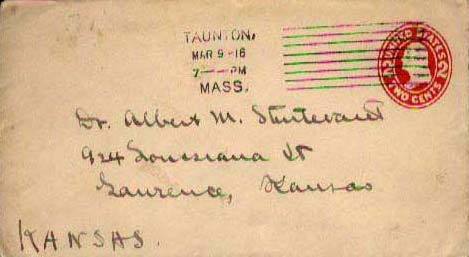 TAUNTON,
MAR 9-16
7 — PM
MASS.
UNITED STATES
TWO CENTS
Dr. Albert M. Sturtevant
924 Louisiana St
Lawrence, Kansas
KANSAS.